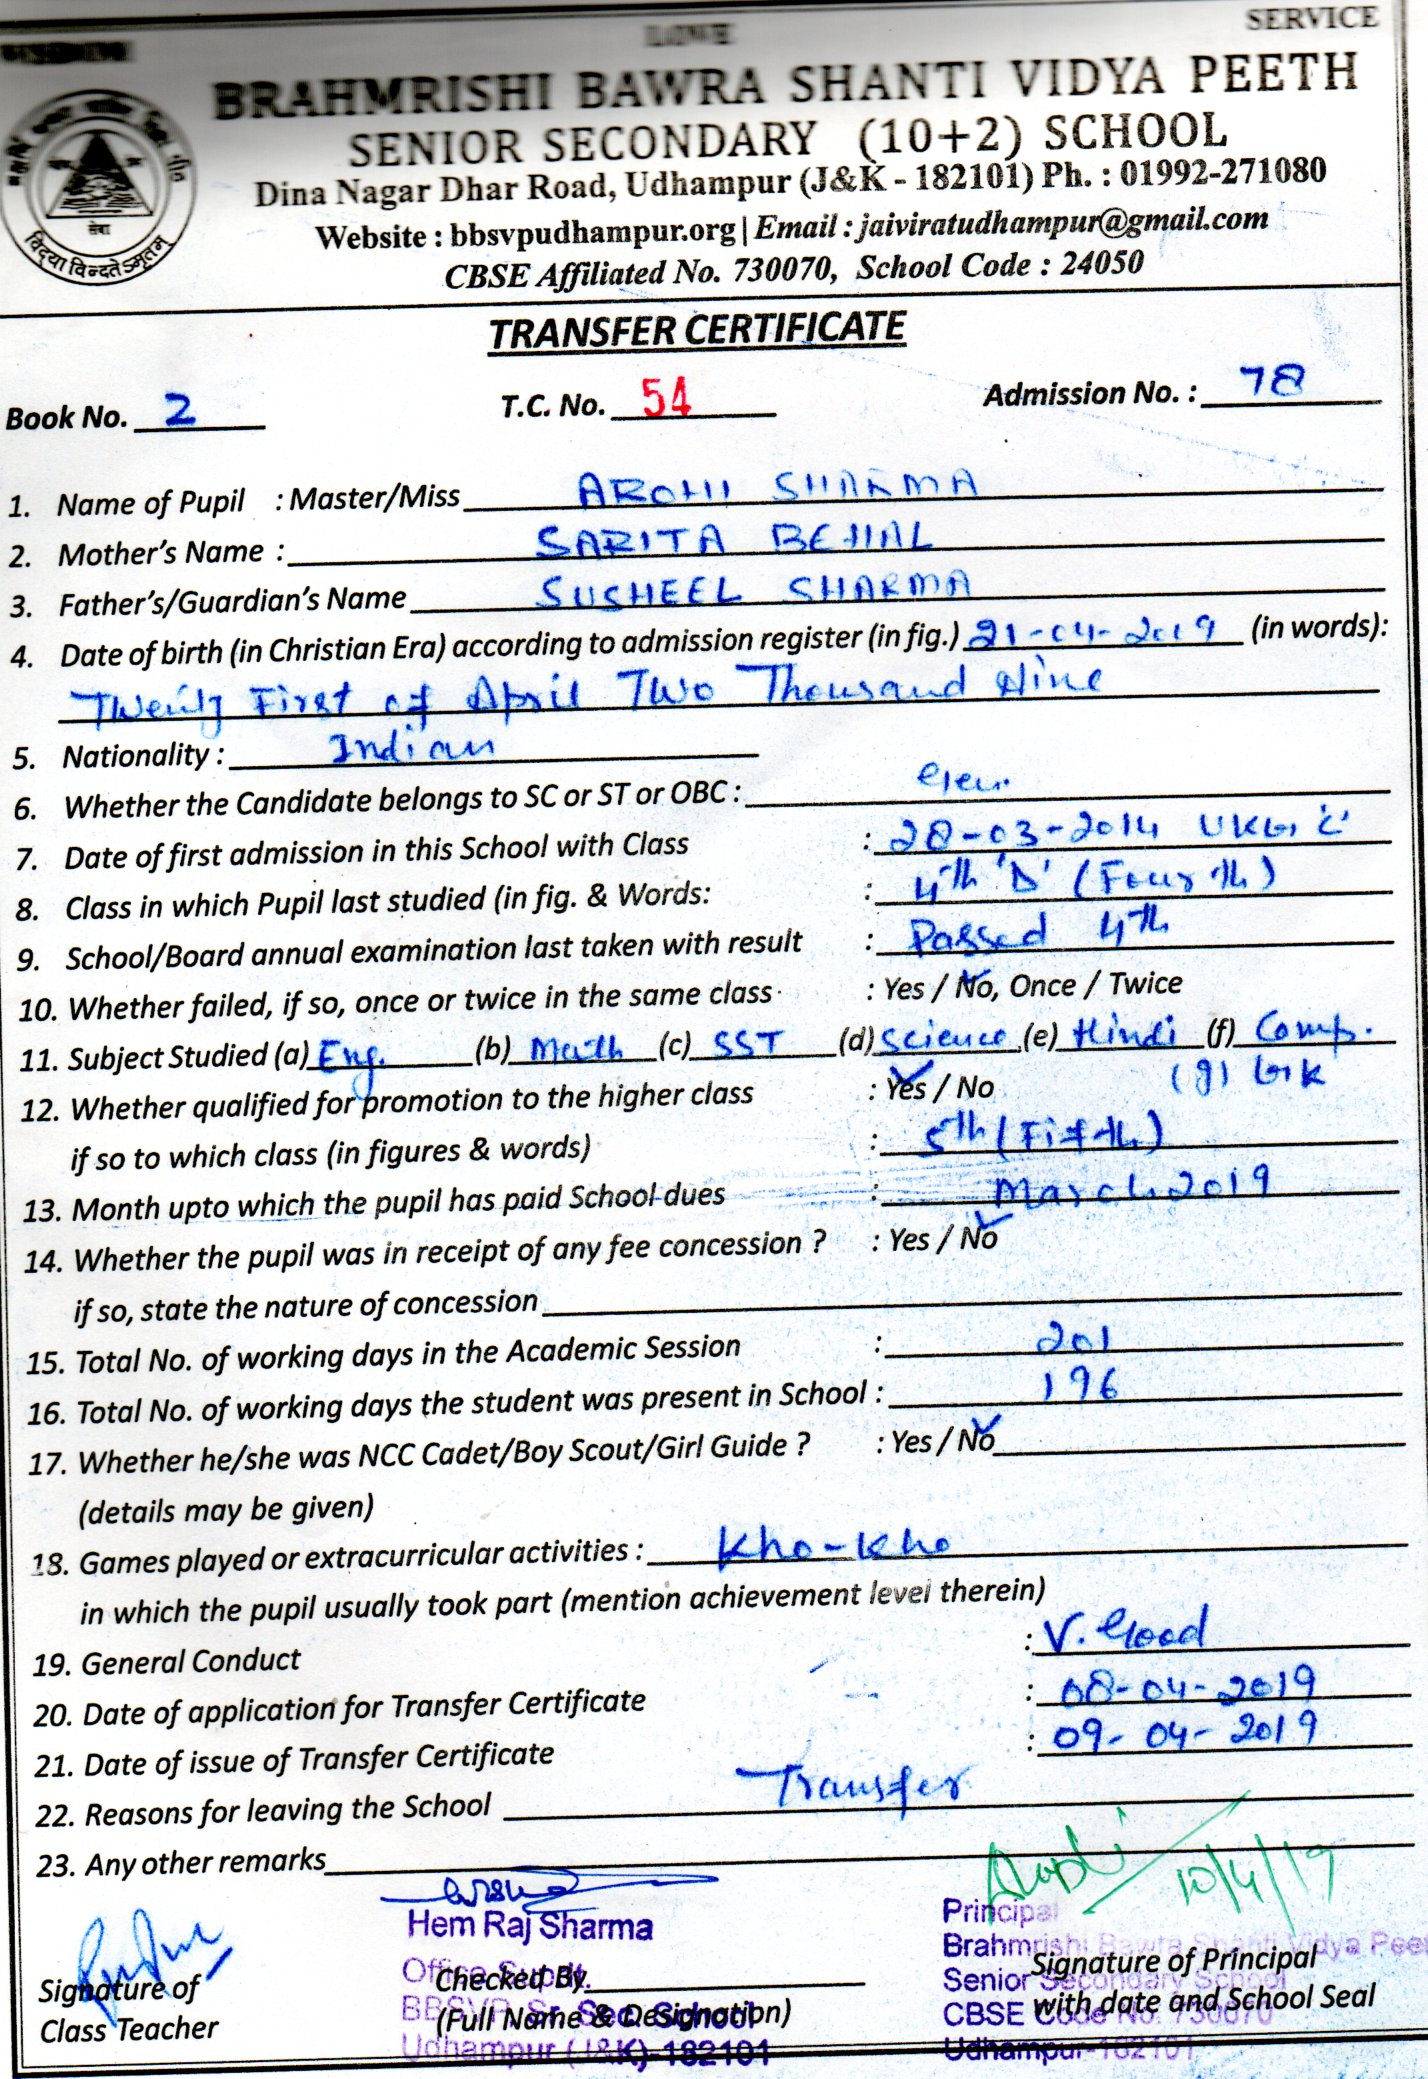 LOVE
SERVICE
BRAHMRISHI BAWRA SHANTI VIDYA PEETH
SENIOR SECONDARY (10+2) SCHOOL
Dina Nagar Dhar Road, Udhampur (J&K - 182101) Ph. : 01992-271080
Website : bbsvpudhampur.org | Email : jaiviratudhampur@gmail.com
CBSE Affiliated No. 730070, School Code : 24050
सेवा
विद्या विन्दतेऽमृतम्
TRANSFER CERTIFICATE
Book No. 2 T.C. No. 54 Admission No. : 78
1. Name of Pupil : Master/Miss AROHI SHARMA
2. Mother's Name : SARITA BEHAL
3. Father's/Guardian's Name SUSHEEL SHARMA
4. Date of birth (in Christian Era) according to admission register (in fig.) 21-04-2019 (in words):
Twenty First of April Two Thousand Nine
5. Nationality : Indian
6. Whether the Candidate belongs to SC or ST or OBC : Gen.
7. Date of first admission in this School with Class : 28-03-2014 UKG 'C'
8. Class in which Pupil last studied (in fig. & Words: : 4th 'D' (Fourth)
9. School/Board annual examination last taken with result : Passed 4th
10. Whether failed, if so, once or twice in the same class : Yes / No, Once / Twice
11. Subject Studied (a) Eng. (b) Math (c) SST (d) Science (e) Hindi (f) Comp.
(g) GK
12. Whether qualified for promotion to the higher class : Yes / No
if so to which class (in figures & words) : 5th (Fifth)
13. Month upto which the pupil has paid School dues : March 2019
14. Whether the pupil was in receipt of any fee concession ? : Yes / No
if so, state the nature of concession
15. Total No. of working days in the Academic Session : 201
16. Total No. of working days the student was present in School : 196
17. Whether he/she was NCC Cadet/Boy Scout/Girl Guide ? : Yes / No
(details may be given)
18. Games played or extracurricular activities : Kho-Kho
in which the pupil usually took part (mention achievement level therein)
19. General Conduct : V. Good
20. Date of application for Transfer Certificate : 08-04-2019
21. Date of issue of Transfer Certificate : 09-04-2019
22. Reasons for leaving the School Transfer
23. Any other remarks
10/4/19
Hem Raj Sharma
Office Supdt.
BBSVP Sr. Sec. School
Udhampur (J&K)-182101
Principal
Brahmrishi Bawra Shanti Vidya Peeth
Senior Secondary School
CBSE Code No. 730070
Udhampur-182101
Signature of
Class Teacher
Checked By.
(Full Name & Designation)
Signature of Principal
with date and School Seal